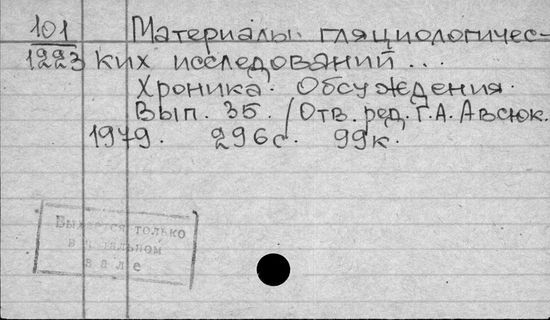 101 Материалы гляциологичес-
1223 ких исследований...
Хроника. Обсуждения.
Вып. 35. /Отв. ред. Г.А. Авсюк.
1979. 296с. 99к.
только
в
зале